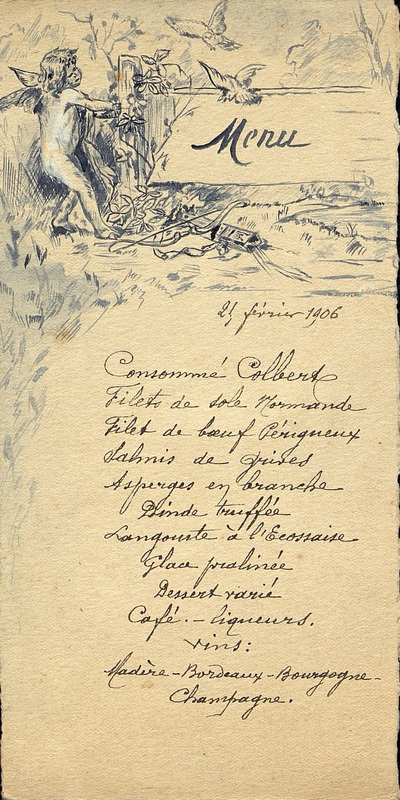 Menu
février 1906
Consommé Colbert
Filets de sole Normande
Filet de bœuf Périgueux
Salmis de grives
Asperges en branche
Dinde truffée
Langouste à l'Ecossaise
Glace pralinée
Dessert varié
Café. - liqueurs.
vins:
Madère - Bordeaux - Bourgogne -
Champagne.